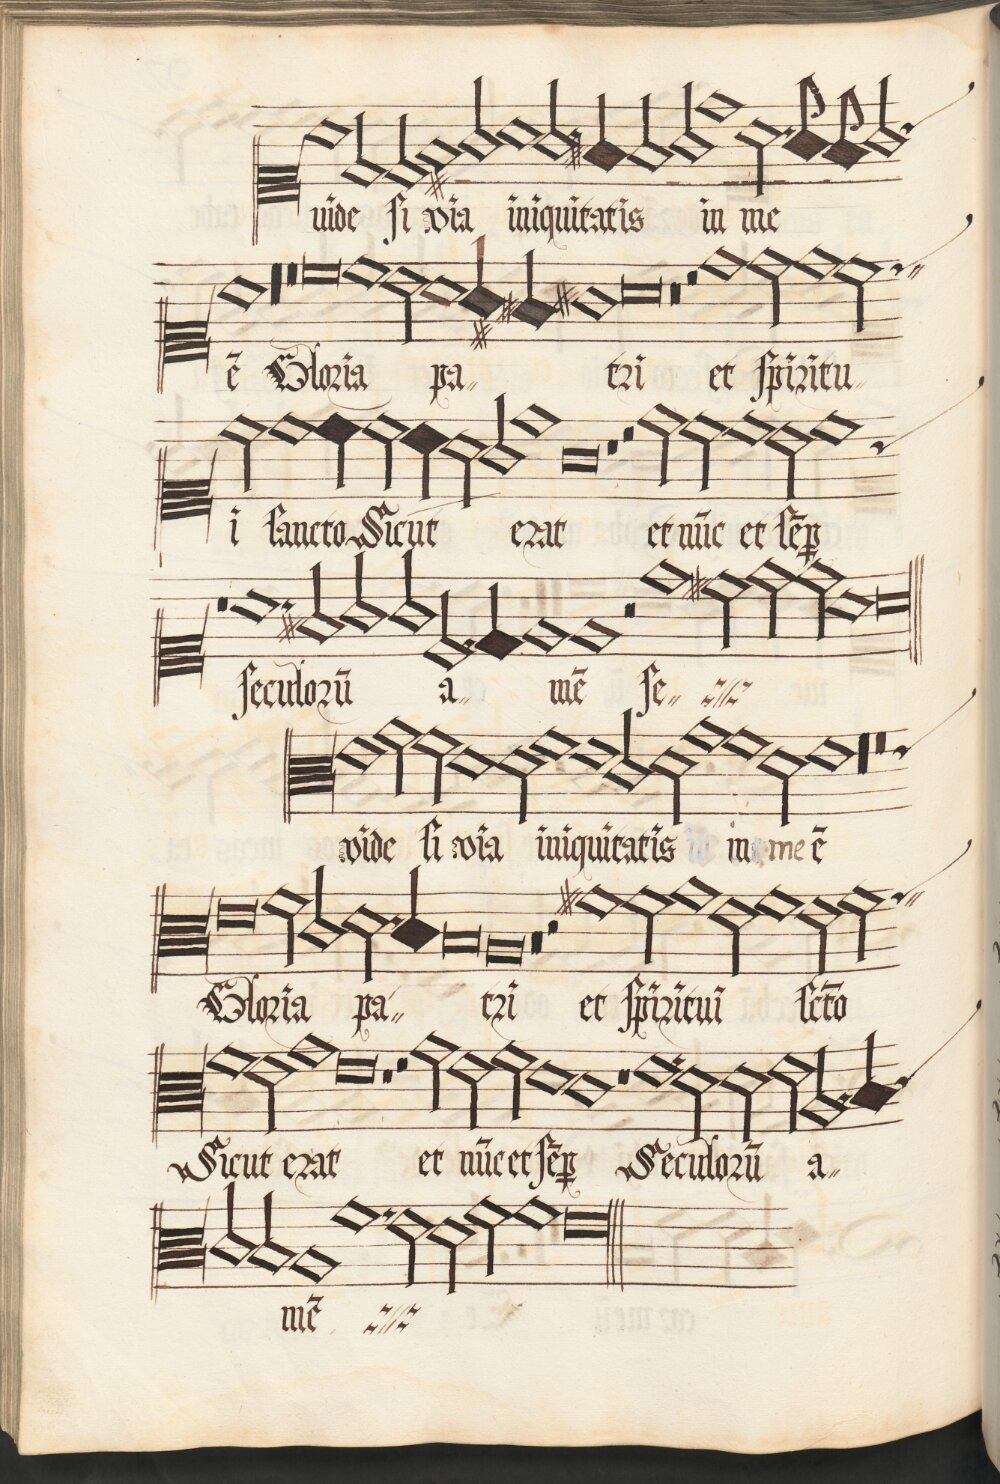 uide si via iniquitatis in me
ē Gloria pa„ tri et spiritu„
i sancto Sicut erat et nūc et sēp
seculorū a„ mē se„
vide si via iniquitatis in me ē
Gloria pa„ tri et spiritui scto
Sicut erat et nūc et sēp Seculorū a„
mē